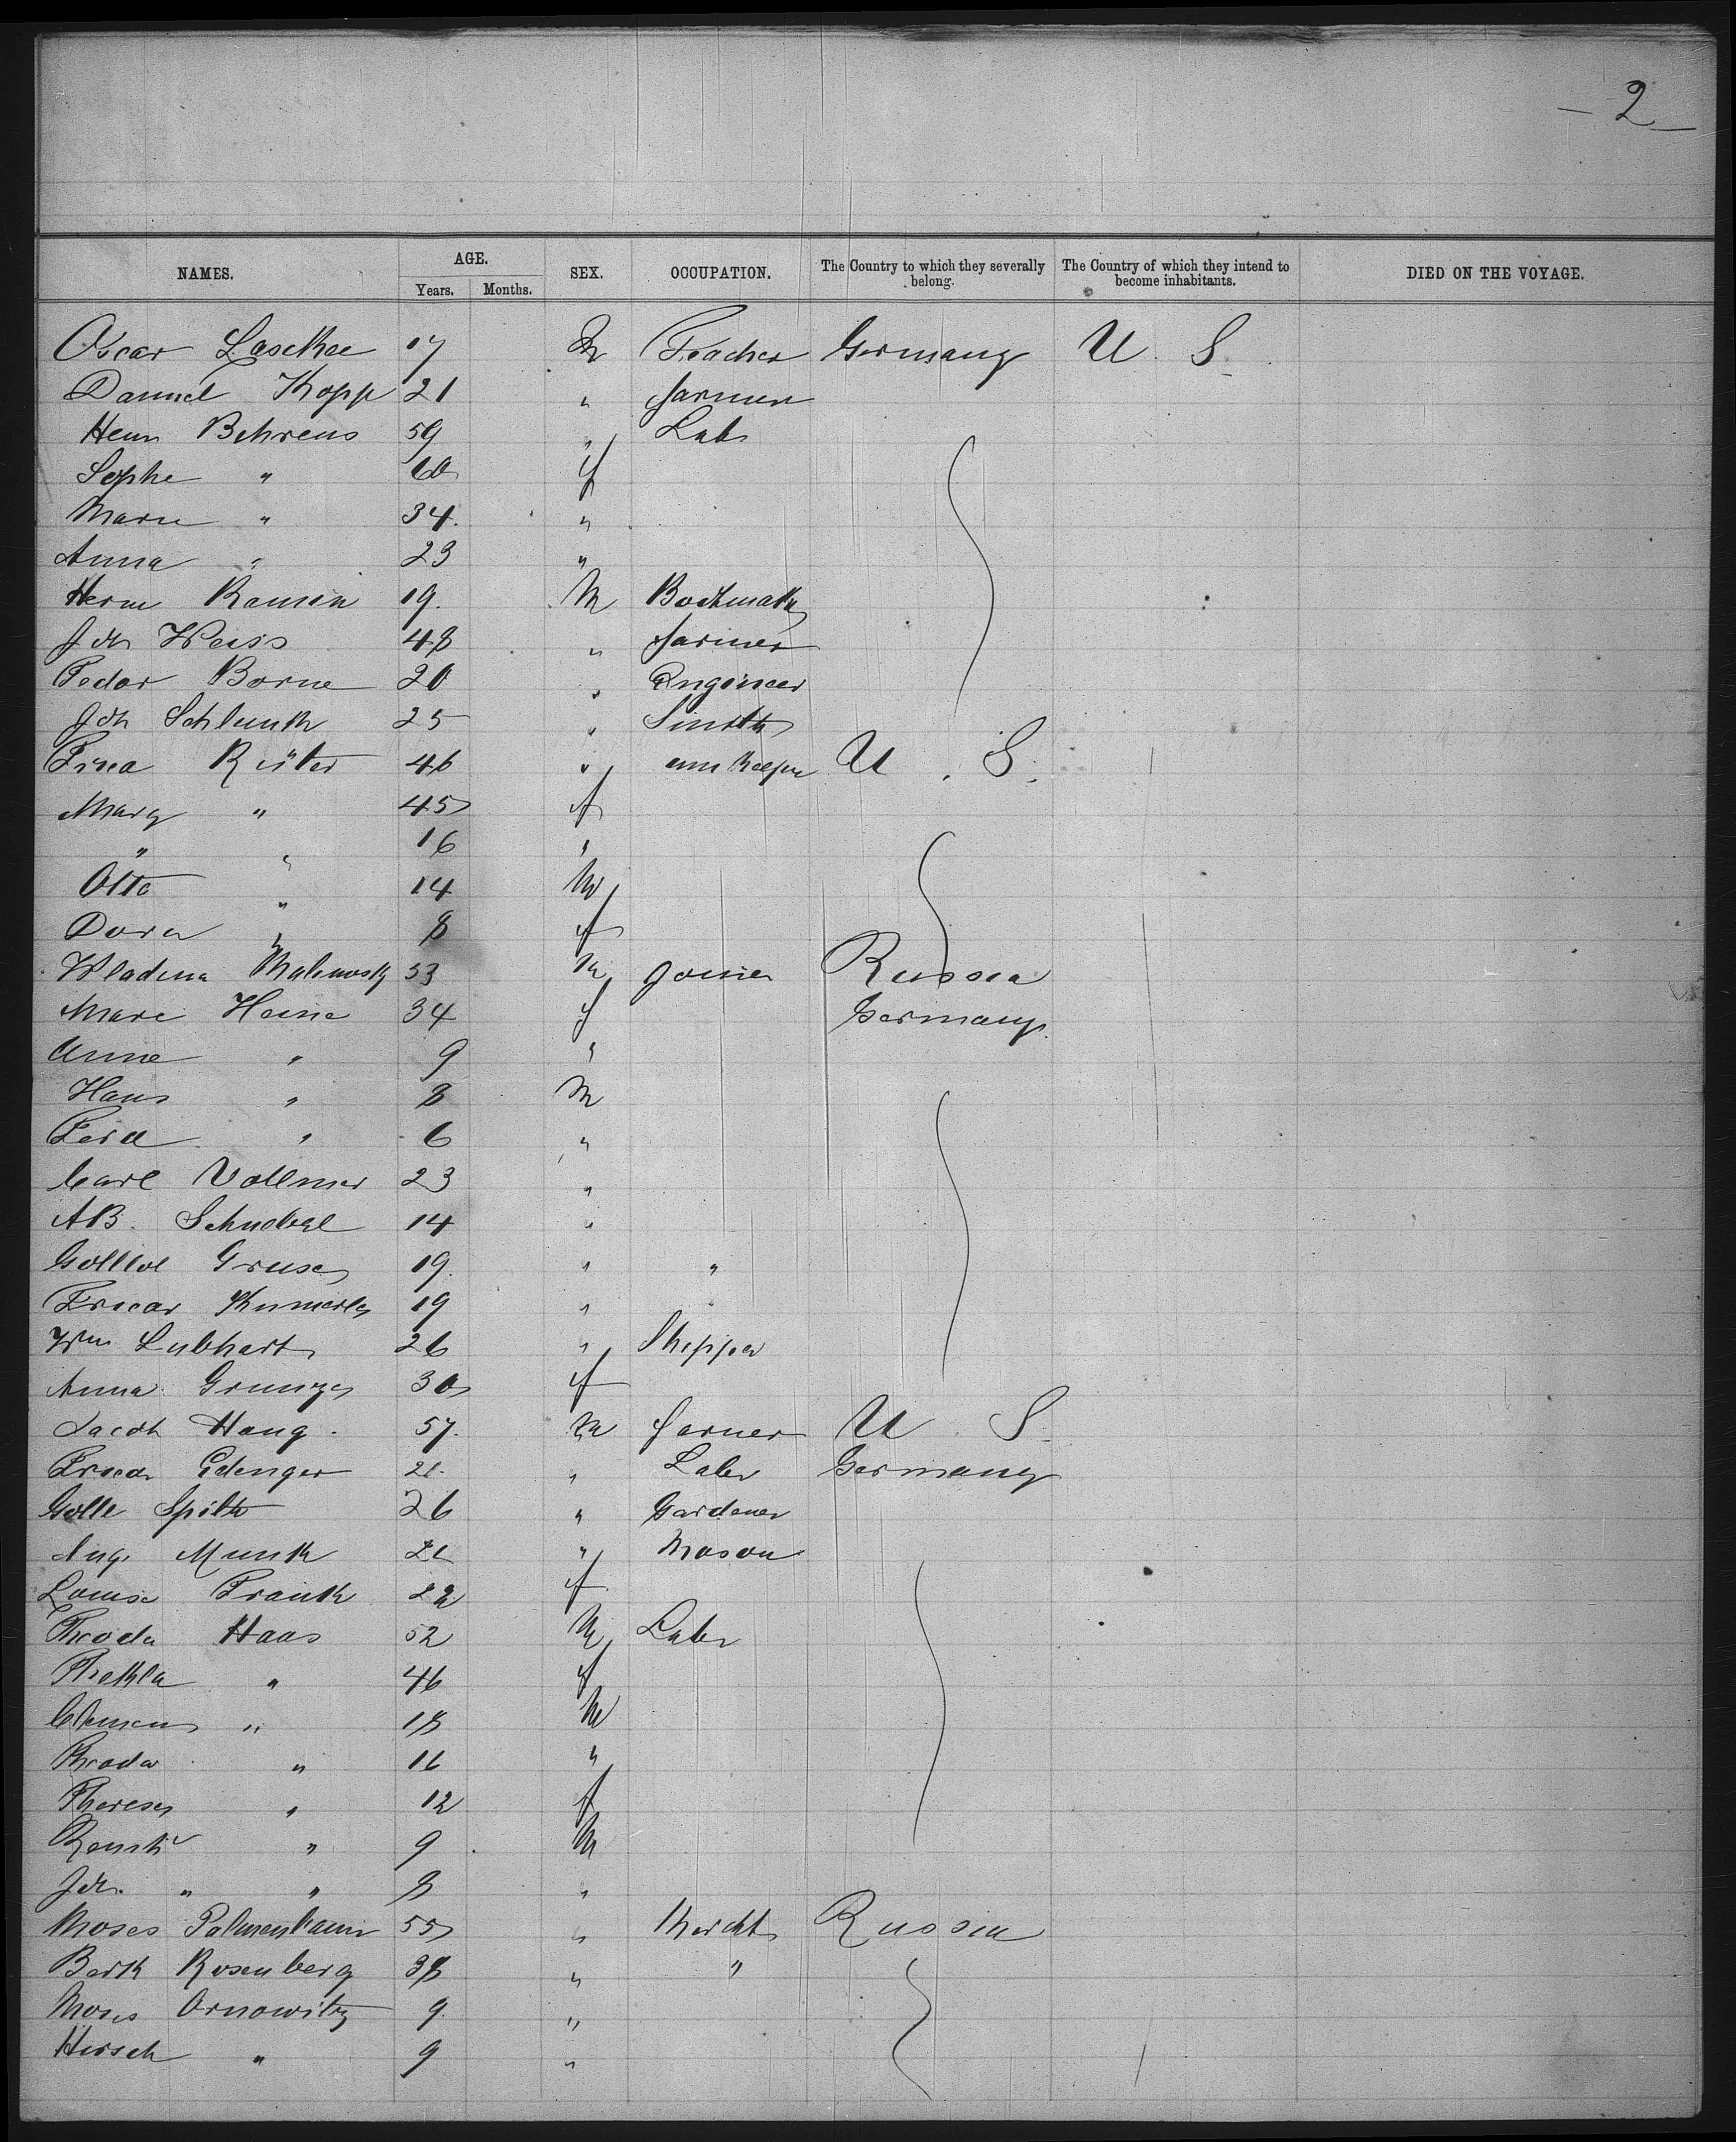 — 2 —
NAMES. AGE. SEX. OCCUPATION. The Country to which they severally belong. The Country of which they intend to become inhabitants. DIED ON THE VOYAGE.
Years. Months.
Oscar Laschke 17 M Teacher Germany U. S.
Daniel Kopp 21 " farmer
Henr Behrens 59 " Labr
Sophe " 60 f
Marie " 34. "
Anna " 23 "
Herm Ramien 19. M
Joh Weiss 48 " farmer
Fedor Borne 20 " Engineer
Joh Schlunk 25 " Smith
Rüter 46 " inn Keeper U. S.
Marg " 45 f
" " 16 "
Otto " 14 M
Dora " 8 f
Wladina Malinosky 53 M Joiner Russia
Marie Heine 34 f Germany.
Anne " 9 "
Hans " 8 M
Ferd " 6 "
Carl Vollmer 23 "
AB. Schnobel 14 "
Gottlob Gruse 19. " "
19 "
Wm Lebhart 26 " Skipper
Anna 30 f
Jacob Haug. 57. M farmer U. S.
Friedr Edinger 21. " Labr Germany
26 " Gardener
Aug. Munk 21 " Mason
Louise Frank 22 f
Theodr Haas 52 M Labr
Thekla " 46 f
Clemens " 18 M
Theodor " 16 "
Therese " 12 f
" 9 M
Joh. " " 8 "
Moses Palmenbaum 55 " Mercht Russia
Berk Rosenberg 38 " "
Moses Arnowitz 9. "
Hirsch " 9 "